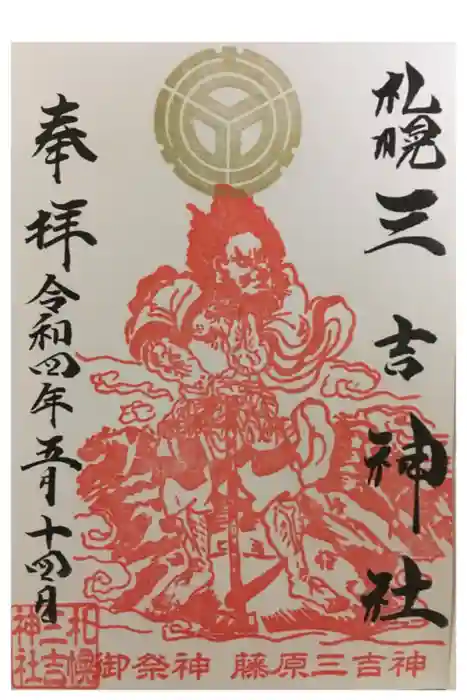 札幌三吉神社
奉拝
令和四年五月十四日
御祭神 藤原三吉神
札幌
三吉
神社